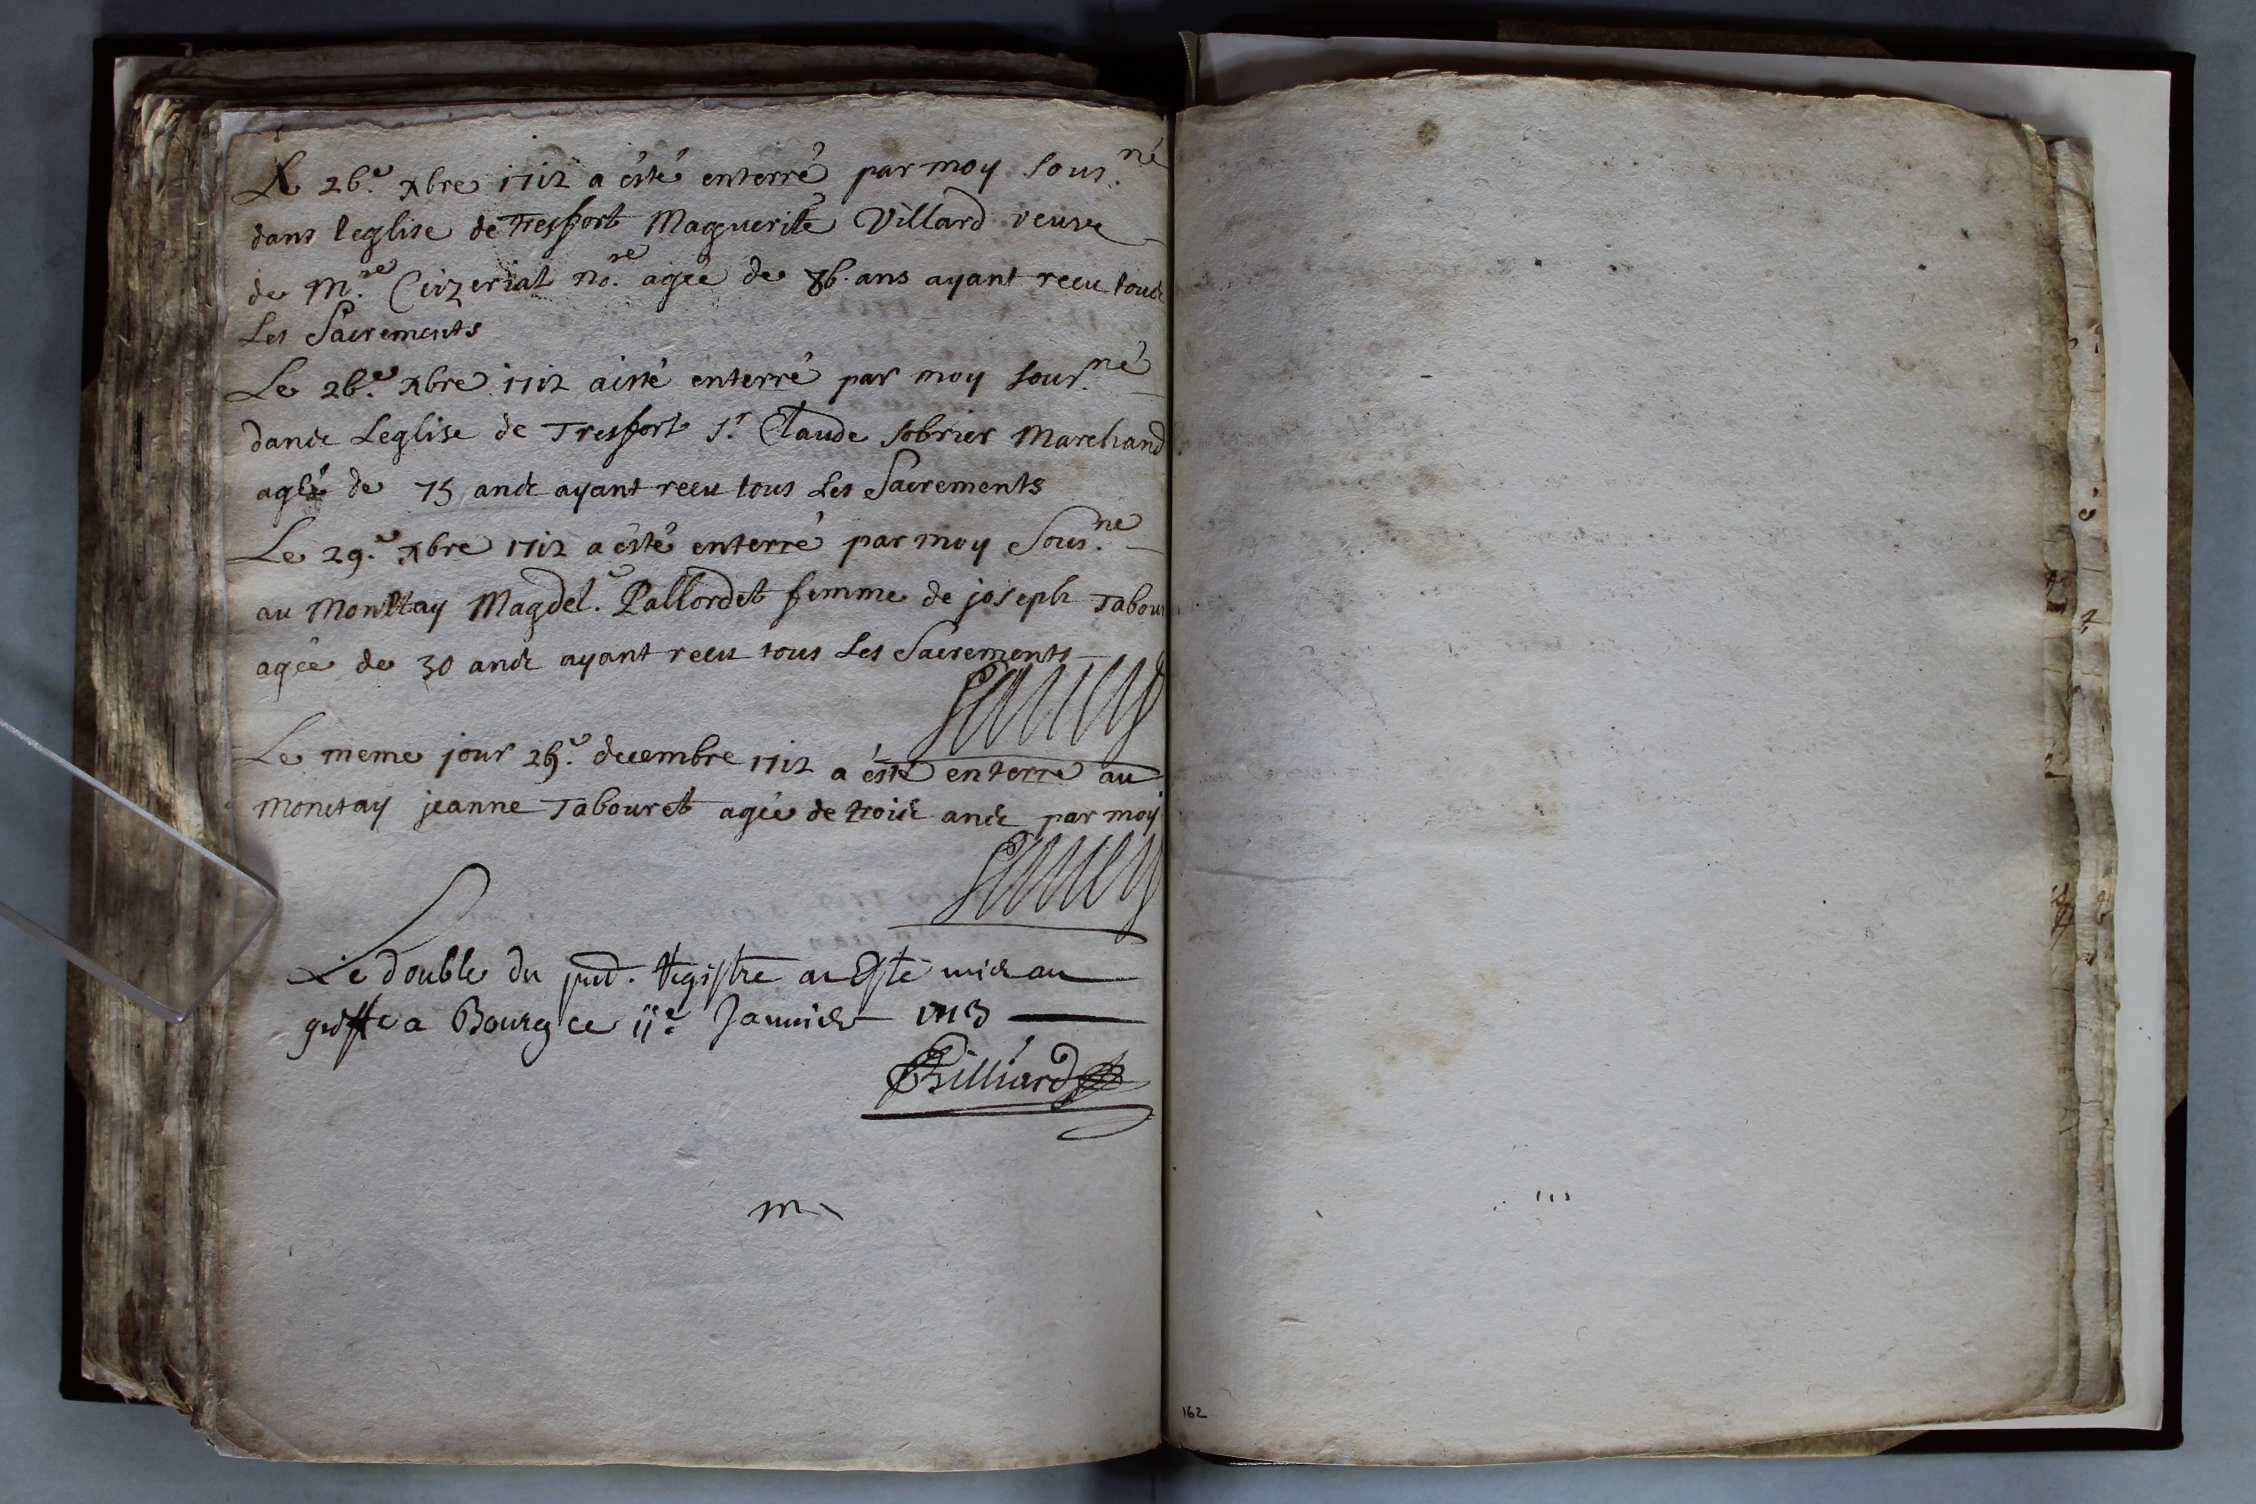 Le 26.e xbre 1712 a ésté enterré par moy sous.né
dans leglise de Tresfort Maguerite Villard veuve
de M.re Cizeriat no.re agée de 86. ans ayant recu tous
Les Sacrements
Le 26.e xbre 1712 aésté enterré par moy sous.né
dans Leglise de Tresfort S.r Claude Sobrier Marchand
agé de 75 ans ayant recu tous Les Sacrements
Le 29.e xbre 1712 a ésté enterré par moy Sous.né
au Monstay Magdel.e Pallordet femme de joseph Tabour
agée de 30 ans ayant recu tous Les Sacrements
Le meme jour 29.e decembre 1712 a ésté enterre au
Monstay jeanne Tabouret agée de trois ans par moy
Le double du pnt. Registre a Esté mis au
greffe a Bourg ce 11e Janvier 1713
Billiard
162